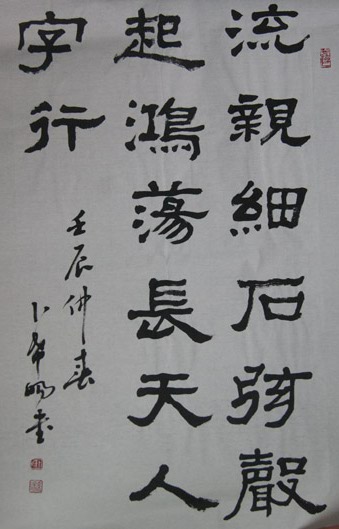 流親細石弦聲
起鴻蕩長天人
字行
壬辰仲春
卜希暘書